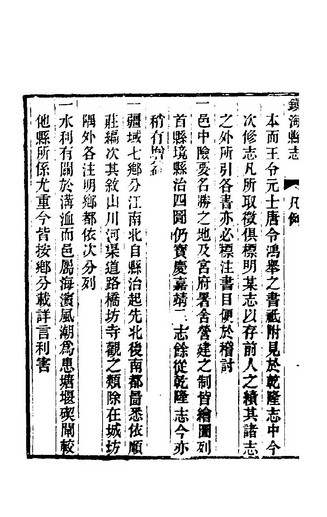 鎮海縣志 凡例
本而王令元士唐令鴻舉之書祇附見於乾隆志中今
次修志凡所取徵俱標明某志以存前人之績其諸志
之外所引各書亦必標注書目便於稽討
一邑中險要名勝之地及官府署舍營建之制皆繪圖列
首縣境縣治四圖仍寶慶嘉靖二志餘從乾隆志今亦
稍有增
一疆域七鄉分江南北自縣治起先北後南都啚悉依順
莊編次其敘山川河渠道路橋坊寺觀之類除在城坊
隅外各注明鄉都依次分列
一水利有關於溝洫而邑屬海濱風潮為患塘堰碶閘較
他縣所係尤重今皆按鄉分載詳言利害